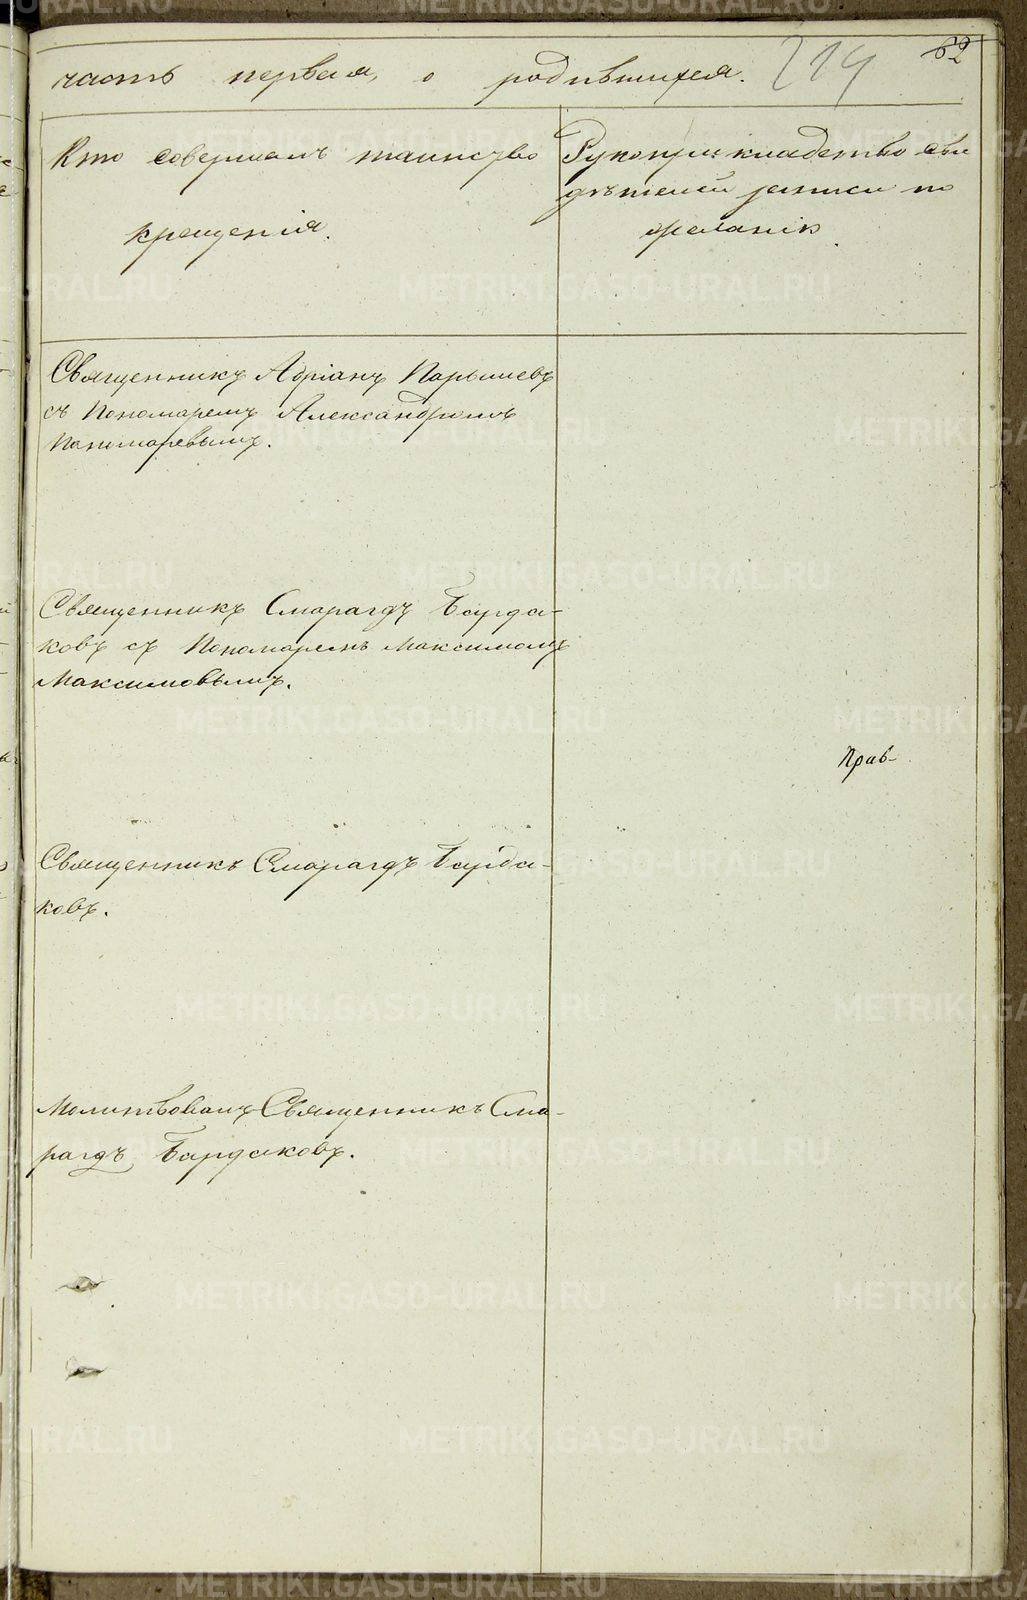 часть первая, о родившихся.
219
62
Кто совершалъ таинство
крещенія.
Рукоприкладство сви
дѣтелей записи по
желанію.
Священникъ Адріанъ Парышевъ
съ Пономаремъ Александромъ
Пономаревымъ.
Священникъ Смарагдъ Барда-
ковъ съ Пономаремъ Максимомъ
Максимовымъ.
Прав-
Священникъ Смарагдъ Барда-
ковъ.
Молитвовалъ Священникъ Сма-
рагдъ Бардаковъ.
METRIKI.GASO-URAL.RU